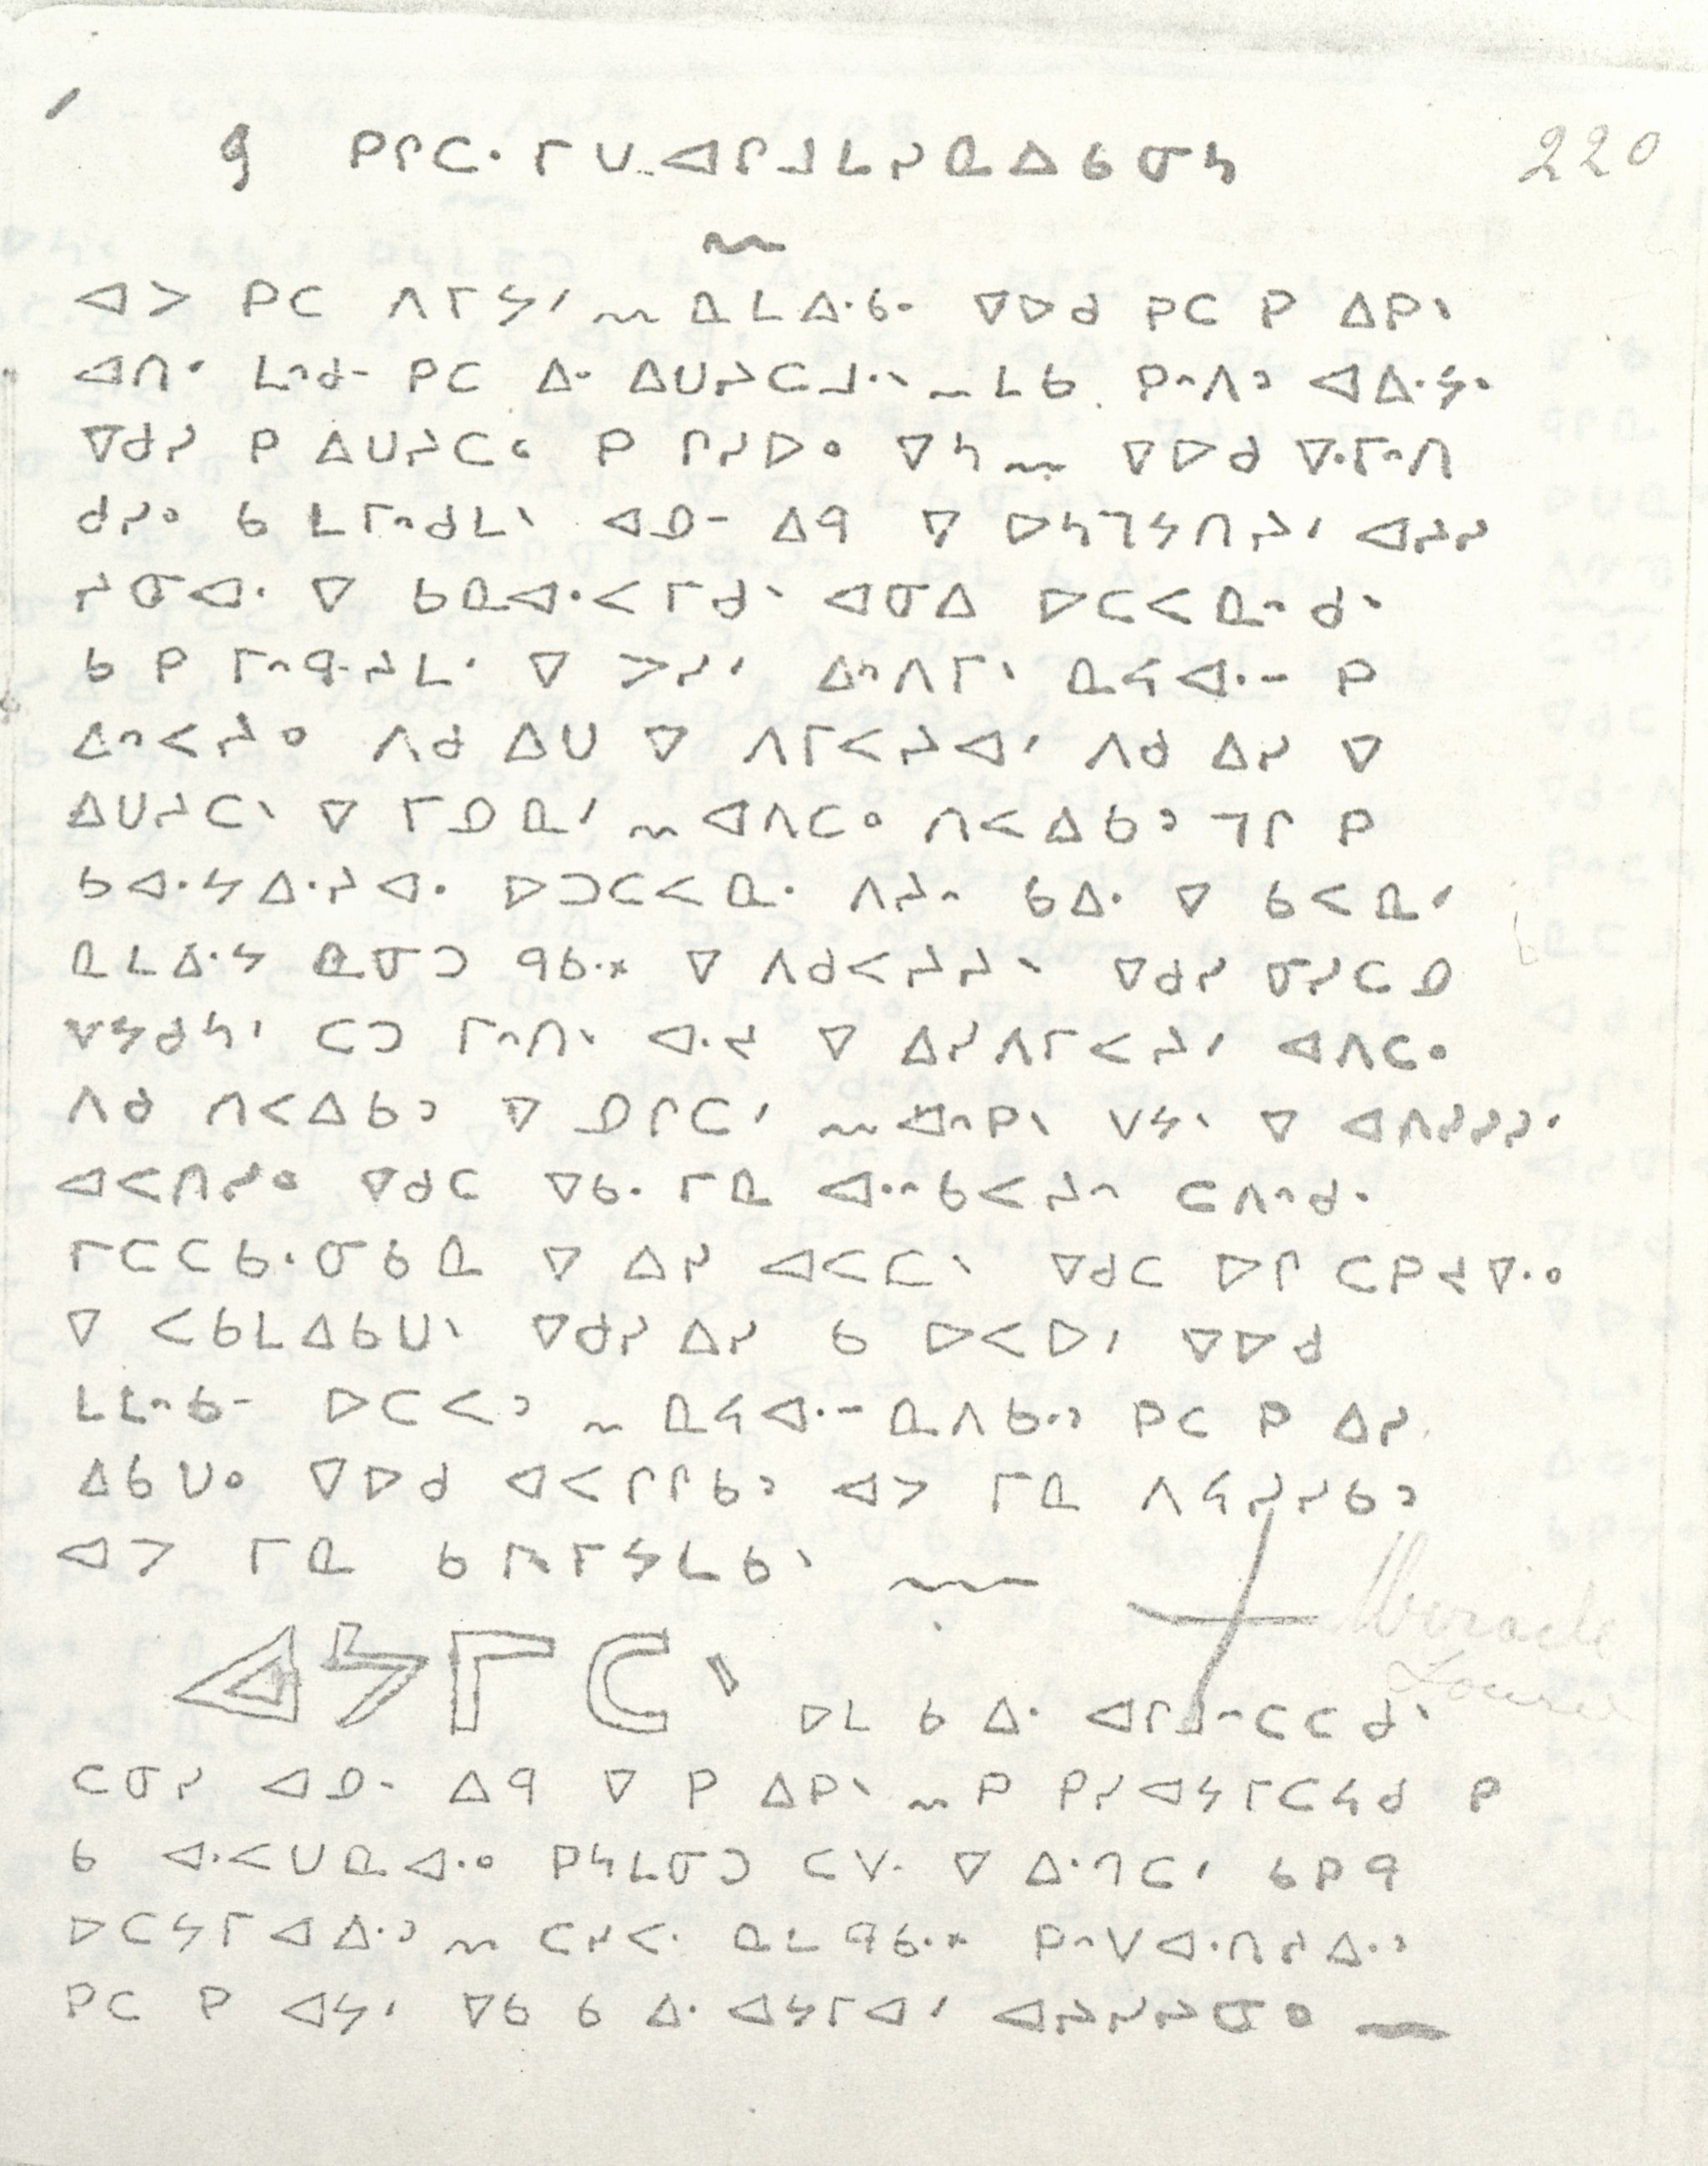 9 ᑭᒋᑕᐧ ᒥ ᑌ ᐊᒋᒧᒪᓯᓇᐃᑲᓂᓴ 220
ᐊᐳ ᑭᑕ ᐱᒥᔭᐟ ᓇᒪᐃᐧᑲᐧ ᐁᐅᑯ ᑭᑕ ᑭ ᐃᑭᐠ
ᐊᑎᐧ ᒪᐢᑯᐨ ᑭᑕ ᐃᐧ ᐃᑌᔨᑕᒧᐧᐠ ᒪᑲ ᑭᐢᐱᐣ ᐊᐃᐧᔭᐧ
ᐁᑯᓯ ᑭ ᐃᑌᔨᑕᒼ ᑭ ᒋᓯᐅᐤ ᐁᓴ ᐁᐅᑯ ᐁᐧᒥᐢᑎ
ᑯᓯᐤ ᑲ ᒪᒥᐢᑯᒪᐠ ᐊᓄᐨ ᐃᑫ ᐁ ᐅᓴᒣᔭᑎᔨᐟ ᐊᔨᓯ
ᔨᓂᐊᐧ ᐁ ᑲᓇᐊᐧᐸᒥᑯᐠ ᐊᓂᐃ ᐅᑕᐸᓇᐢᑯᐠ
ᑲ ᑭ ᒥᐢᑫᔨᒪᐟ ᐁ ᐳᓯᐟ ᐃᐢᐱᒥᐠ ᓇᔦᐊᐧᐨ ᑭ
ᐃᐢᐸᔨᐤ ᐱᑯ ᐃᑌ ᐁ ᐱᒥᐸᔨᐊᐟ ᐱᑯ ᐃᓯ ᐁ
ᐃᑌᔨᑕᐠ ᐁ ᒥᓄᓇᐟ ᐊᐱᑕᐤ ᑎᐸᐃᑲᐣ ᒣᒋ ᑭ
ᑲᐊᐧᔭᐃᐧᔨᐊᐧ ᐅᑐᑕᐸᓇᐧ ᐱᔨᐢ ᑲᐃᐧ ᐁ ᑲᐸᓇᐟ
ᓇᒪᐃᐧᔭ ᓇᓂᑐ ᑫᑲᐧᕽ ᐁ ᐱᑯᐸᔨᔨᐠ ᐁᑯᓯ ᓂᓯᑕᓄ
ᐯᔭᑯᓴᐟ ᑕᑐ ᒥᐢᑎᐠ ᐊᐧᔪ ᐁ ᐃᓯᐱᒥᐸᔨᐟ ᐊᐱᑕᐤ
ᐱᑯ ᑎᐸᐃᑲᐣ ᐁ ᓄᒋᑕᐟ ᐊᐢᑭᐠ ᐯᔭᐠ ᐁ ᐊᐱᓯᓯᓯᐟ
ᐊᐸᑎᓯᐤ ᐁᑯᑕ ᐁᑲᐧ ᒥᓇ ᐊᐧᐢᑲᐸᔨᐢ ᑕᐱᐢᑯᐧ
ᒥᑕᑕᑲᐧᓂᑲᓇ ᐁ ᐃᓯ ᐊᐸᑕᐠ ᐁᑯᑕ ᐅᒋ ᑕᑭᔪᐁᐧᐤ
ᐁ ᐸᑲᒪᐃᑲᑌᐠ ᐁᑯᓯ ᐃᓯ ᑲ ᐅᐸᐅᐟ ᐁᐅᑯ
ᒪᒪᐢᑲᐨ ᐅᑕᐸᐣ ᓇᔦᐊᐧᐨ ᓇᐱᑲᐧᐣ ᑭᑕ ᑭ ᐃᓯ
ᐃᑲᑌᐤ ᐁᐅᑯ ᐊᐸᒋᒋᑲᐣ ᐊᐳ ᒥᓇ ᐱᔦᓯᓯᑲᐣ
ᐊᐳ ᒥᓇ ᑲ ᒥᔭᒪᑲᐠ
Miracle
ᐊᔭᒥᑕᐠ ᐅᒪ ᑲ ᐃᐧ ᐊᒋᒧᐢᑕᑕᑯᐠ
ᑕᓂᓯ ᐊᓄᐨ ᐃᑫ ᐁ ᑭ ᐃᑭᐠ ᑭ ᑭᓯᐊᔭᒥᑕᔦᑯ ᑭ
ᑲ ᐊᐧᐸᑌᓇᐊᐧᐤ ᑭᓴᒪᓂᑐ ᑕᐯᐧ ᐁ ᐃᐧᒉᑕᐟ ᑲᑭᑫ
ᐅᑕᔭᒥᐊᐃᐧᐣ ᑕᓯᐸᐧ ᓇᒪ ᑫᑲᐧᕽ ᑭᐢᐯᐊᐧᑎᓯᐃᐧᐣ
ᑭᑕ ᑭ ᐊᔭᐟ ᐁᑲ ᑲ ᐃᐧ ᐊᔭᒥᐊᐟ ᐊᔨᓯᔨᓂᐤ